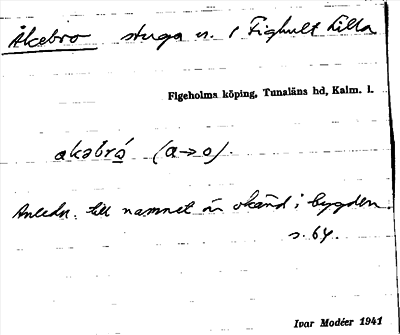 Åkebro stuga u. / Fighult Lilla
Figeholms köping, Tunaläns hd, Kalm. l.
akabrå (a→o).
Anledn. till namnet är okänd i bygden.
s. 64.
Ivar Modéer 1941